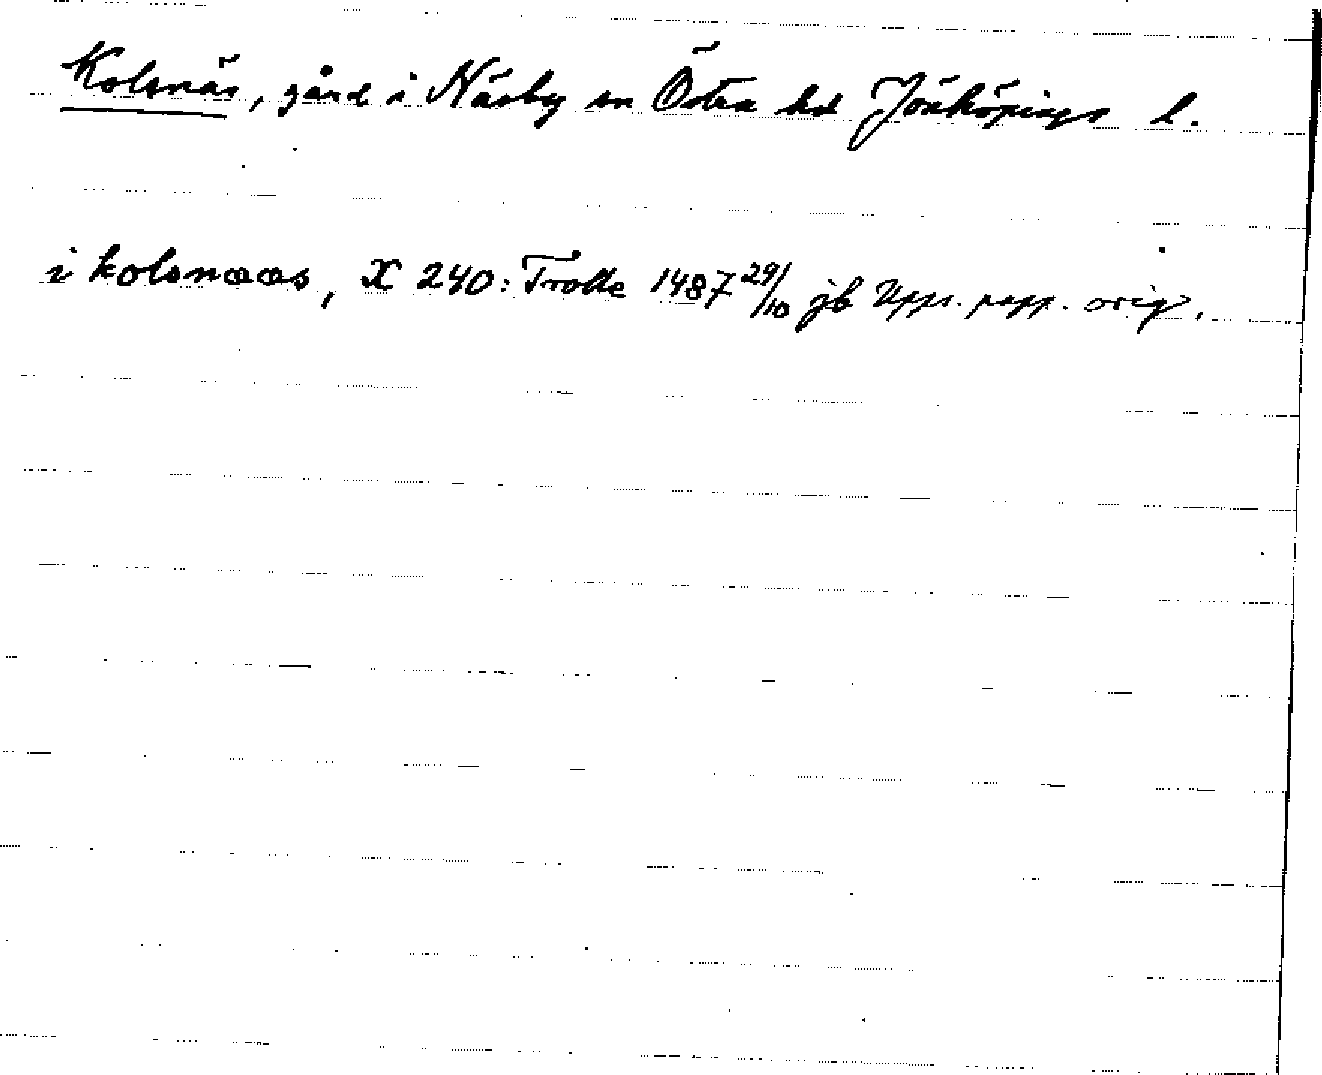 Kolsnäs, gård i Näsby sn Östra hd Jönköpings l.
i kolsnaas, X 240: Trolle 1487 29/10 jb Upps. papp. orig.